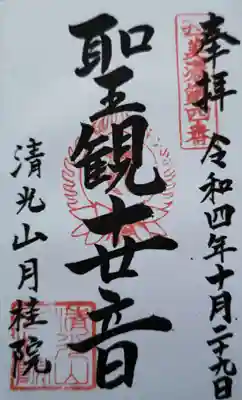 奉拝
令和四年十月二十九日
聖観世音
清光山月桂院